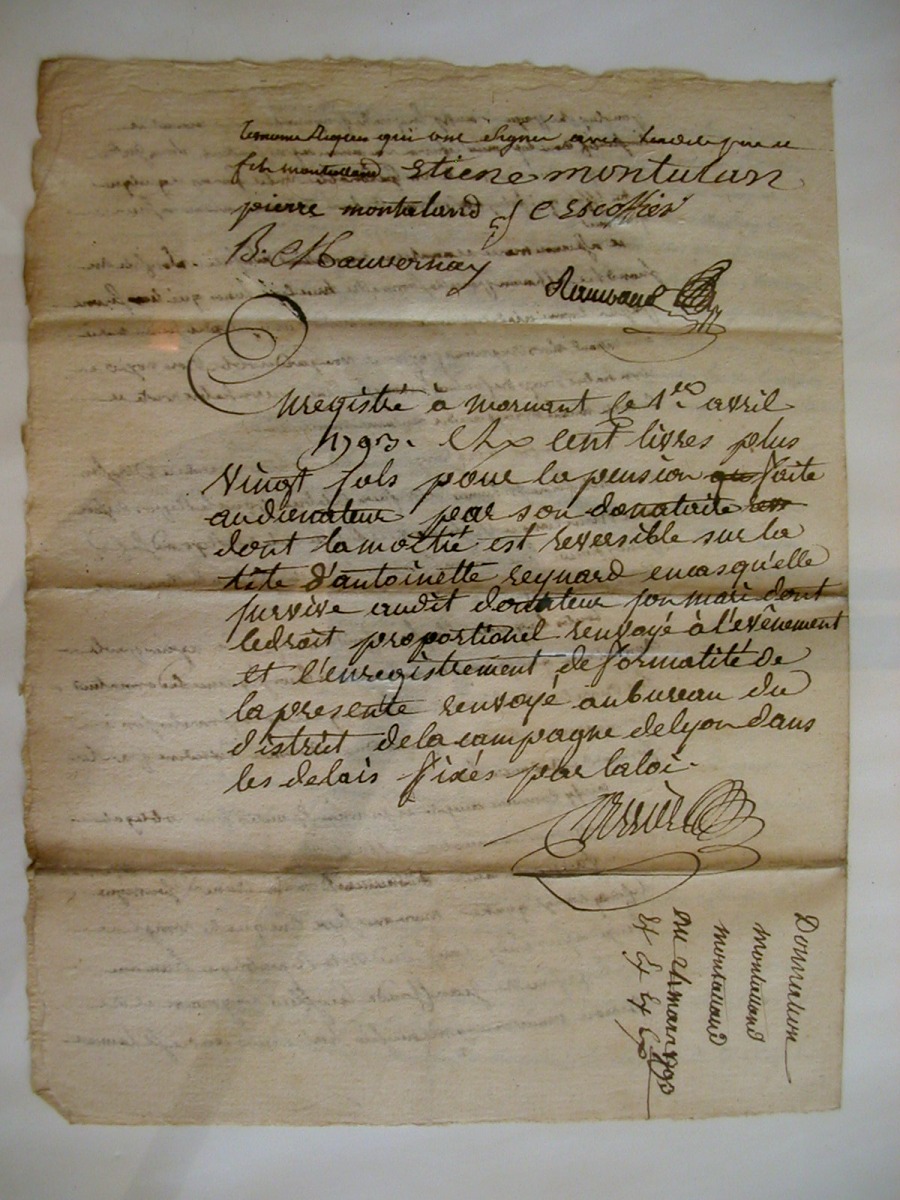 temoins Requis qui ont Signés avec
fils montaland Etiene montalan
pierre montaland J Escoffier
B. Chauvernay
Enregistré à mornant le 1er. avril
1793. cent livres plus
Vingt sols pour la pension faite
audonateur par son donataire
dont la moitié est reversible sur la
tête d'antoinette reynard encasqu'elle
survive audit donateur son mari dont
ledroit proportionel renvoyé à l'evênement
et l'enregistrement de formatité de
lapresente renvoyé aubureau du
district delacampagne delyon dans
les delais fixés par laloi.
Donnation
montalland
montalland
Du mars 1793